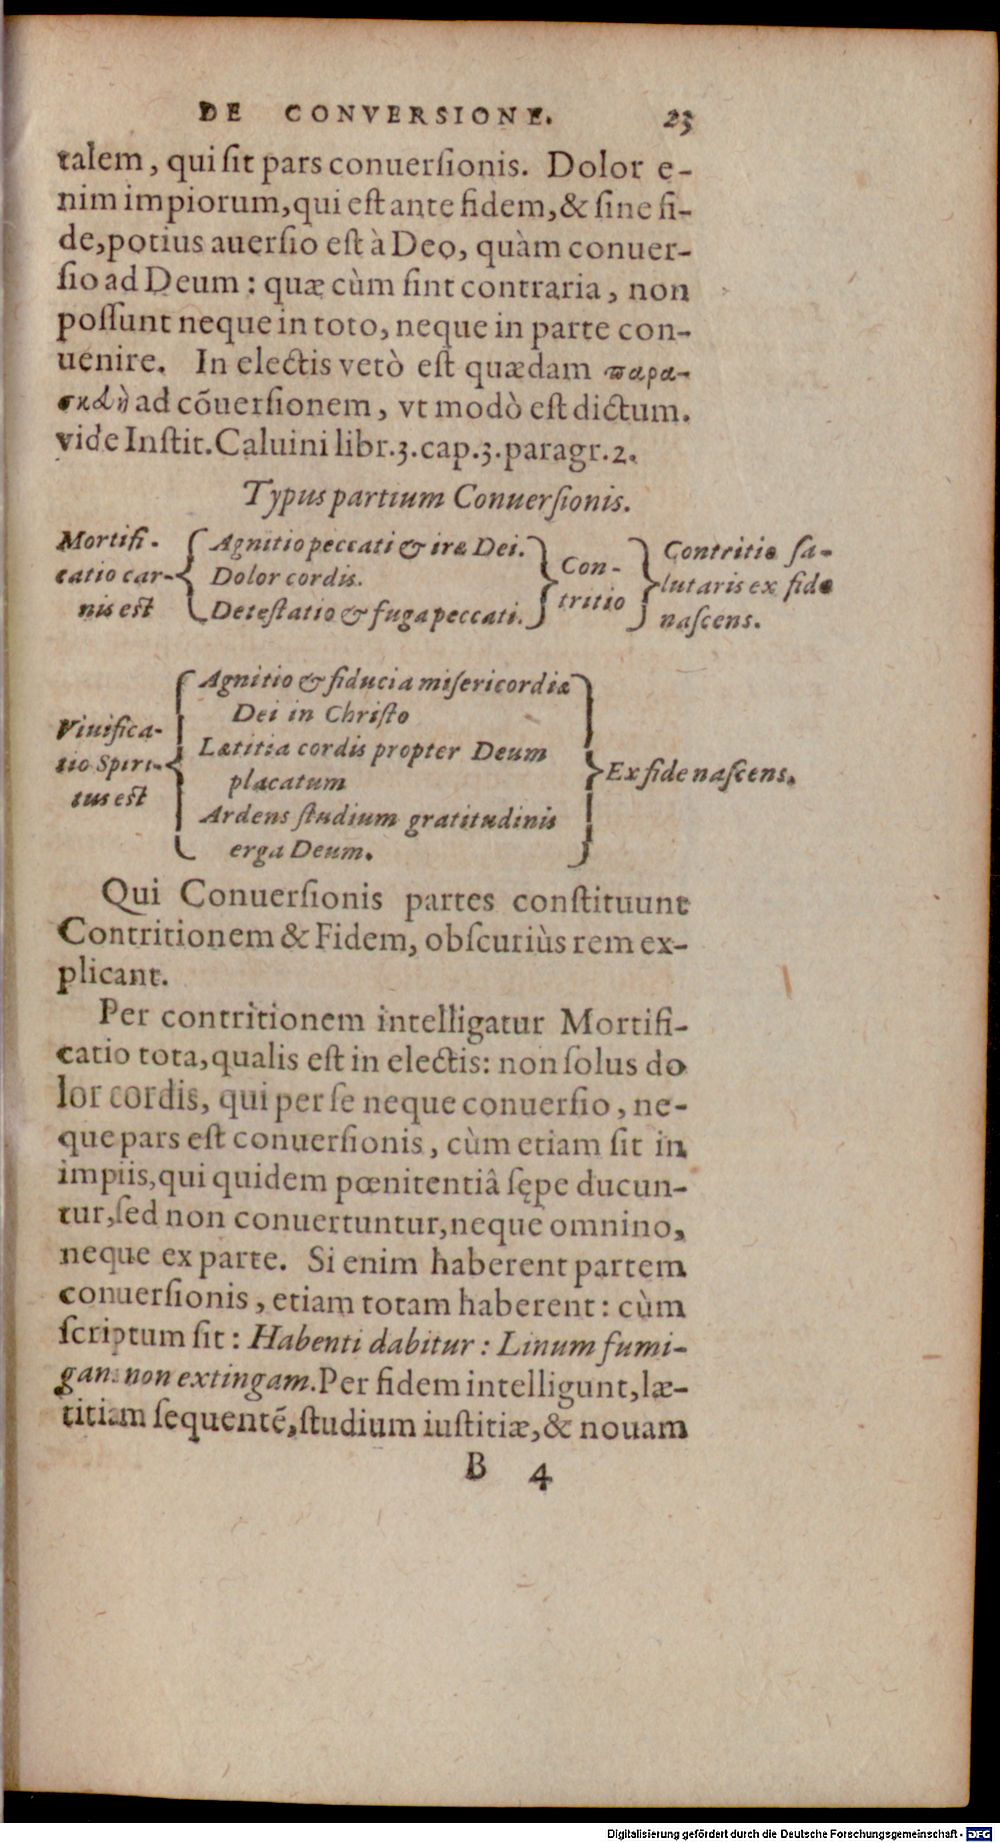 DE CONVERSIONE. 23
talem, qui ſit pars conuerſionis. Dolor e-
nim impiorum, qui eſt ante fidem, & ſine fi-
de, potius auerſio eſt à Deo, quàm conuer-
ſio ad Deum : quæ cùm ſint contraria, non
poſſunt neque in toto, neque in parte con-
uenire. In electis verò eſt quædam παρα-
σκευὴ ad cõuerſionem, vt modò eſt dictum.
vide Inſtit. Caluini libr.3.cap.3.paragr.2.
Typus partium Conuerſionis.
Mortifi-
catio car-
nis eſt
Agnitio peccati & iræ Dei.
Dolor cordis.
Deteſtatio & fuga peccati.
Con-
tritio
Contritio ſa-
lutaris ex fide
naſcens.
Viuifica-
tio Spiri-
tus eſt
Agnitio & fiducia miſericordiæ
Dei in Chriſto
Lætitia cordis propter Deum
placatum
Ardens ſtudium gratitudinis
erga Deum.
Ex fide naſcens.
Qui Conuerſionis partes conſtituunt
Contritionem & Fidem, obſcuriùs rem ex-
plicant.
Per contritionem intelligatur Mortifi-
catio tota, qualis eſt in electis: non ſolus do
lor cordis, qui per ſe neque conuerſio, ne-
que pars eſt conuerſionis, cùm etiam ſit in
impiis, qui quidem pœnitentiâ ſępe ducun-
tur, ſed non conuertuntur, neque omnino,
neque ex parte. Si enim haberent partem
conuerſionis, etiam totam haberent : cùm
ſcriptum ſit : Habenti dabitur : Linum fumi-
gans non extingam. Per fidem intelligunt, læ-
titiam ſequentẽ, ſtudium iuſtitiæ, & nouam
B 4
Digitalisierung gefördert durch die Deutsche Forschungsgemeinschaft - DFG